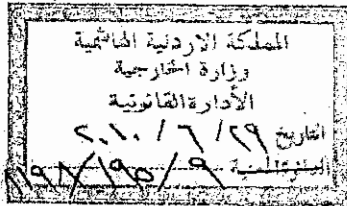 المملكة الاردنية الهاشمية
وزارة الخارجية
الأدارة القانونية
التاريخ ٢٠١٠/٦/٢٩